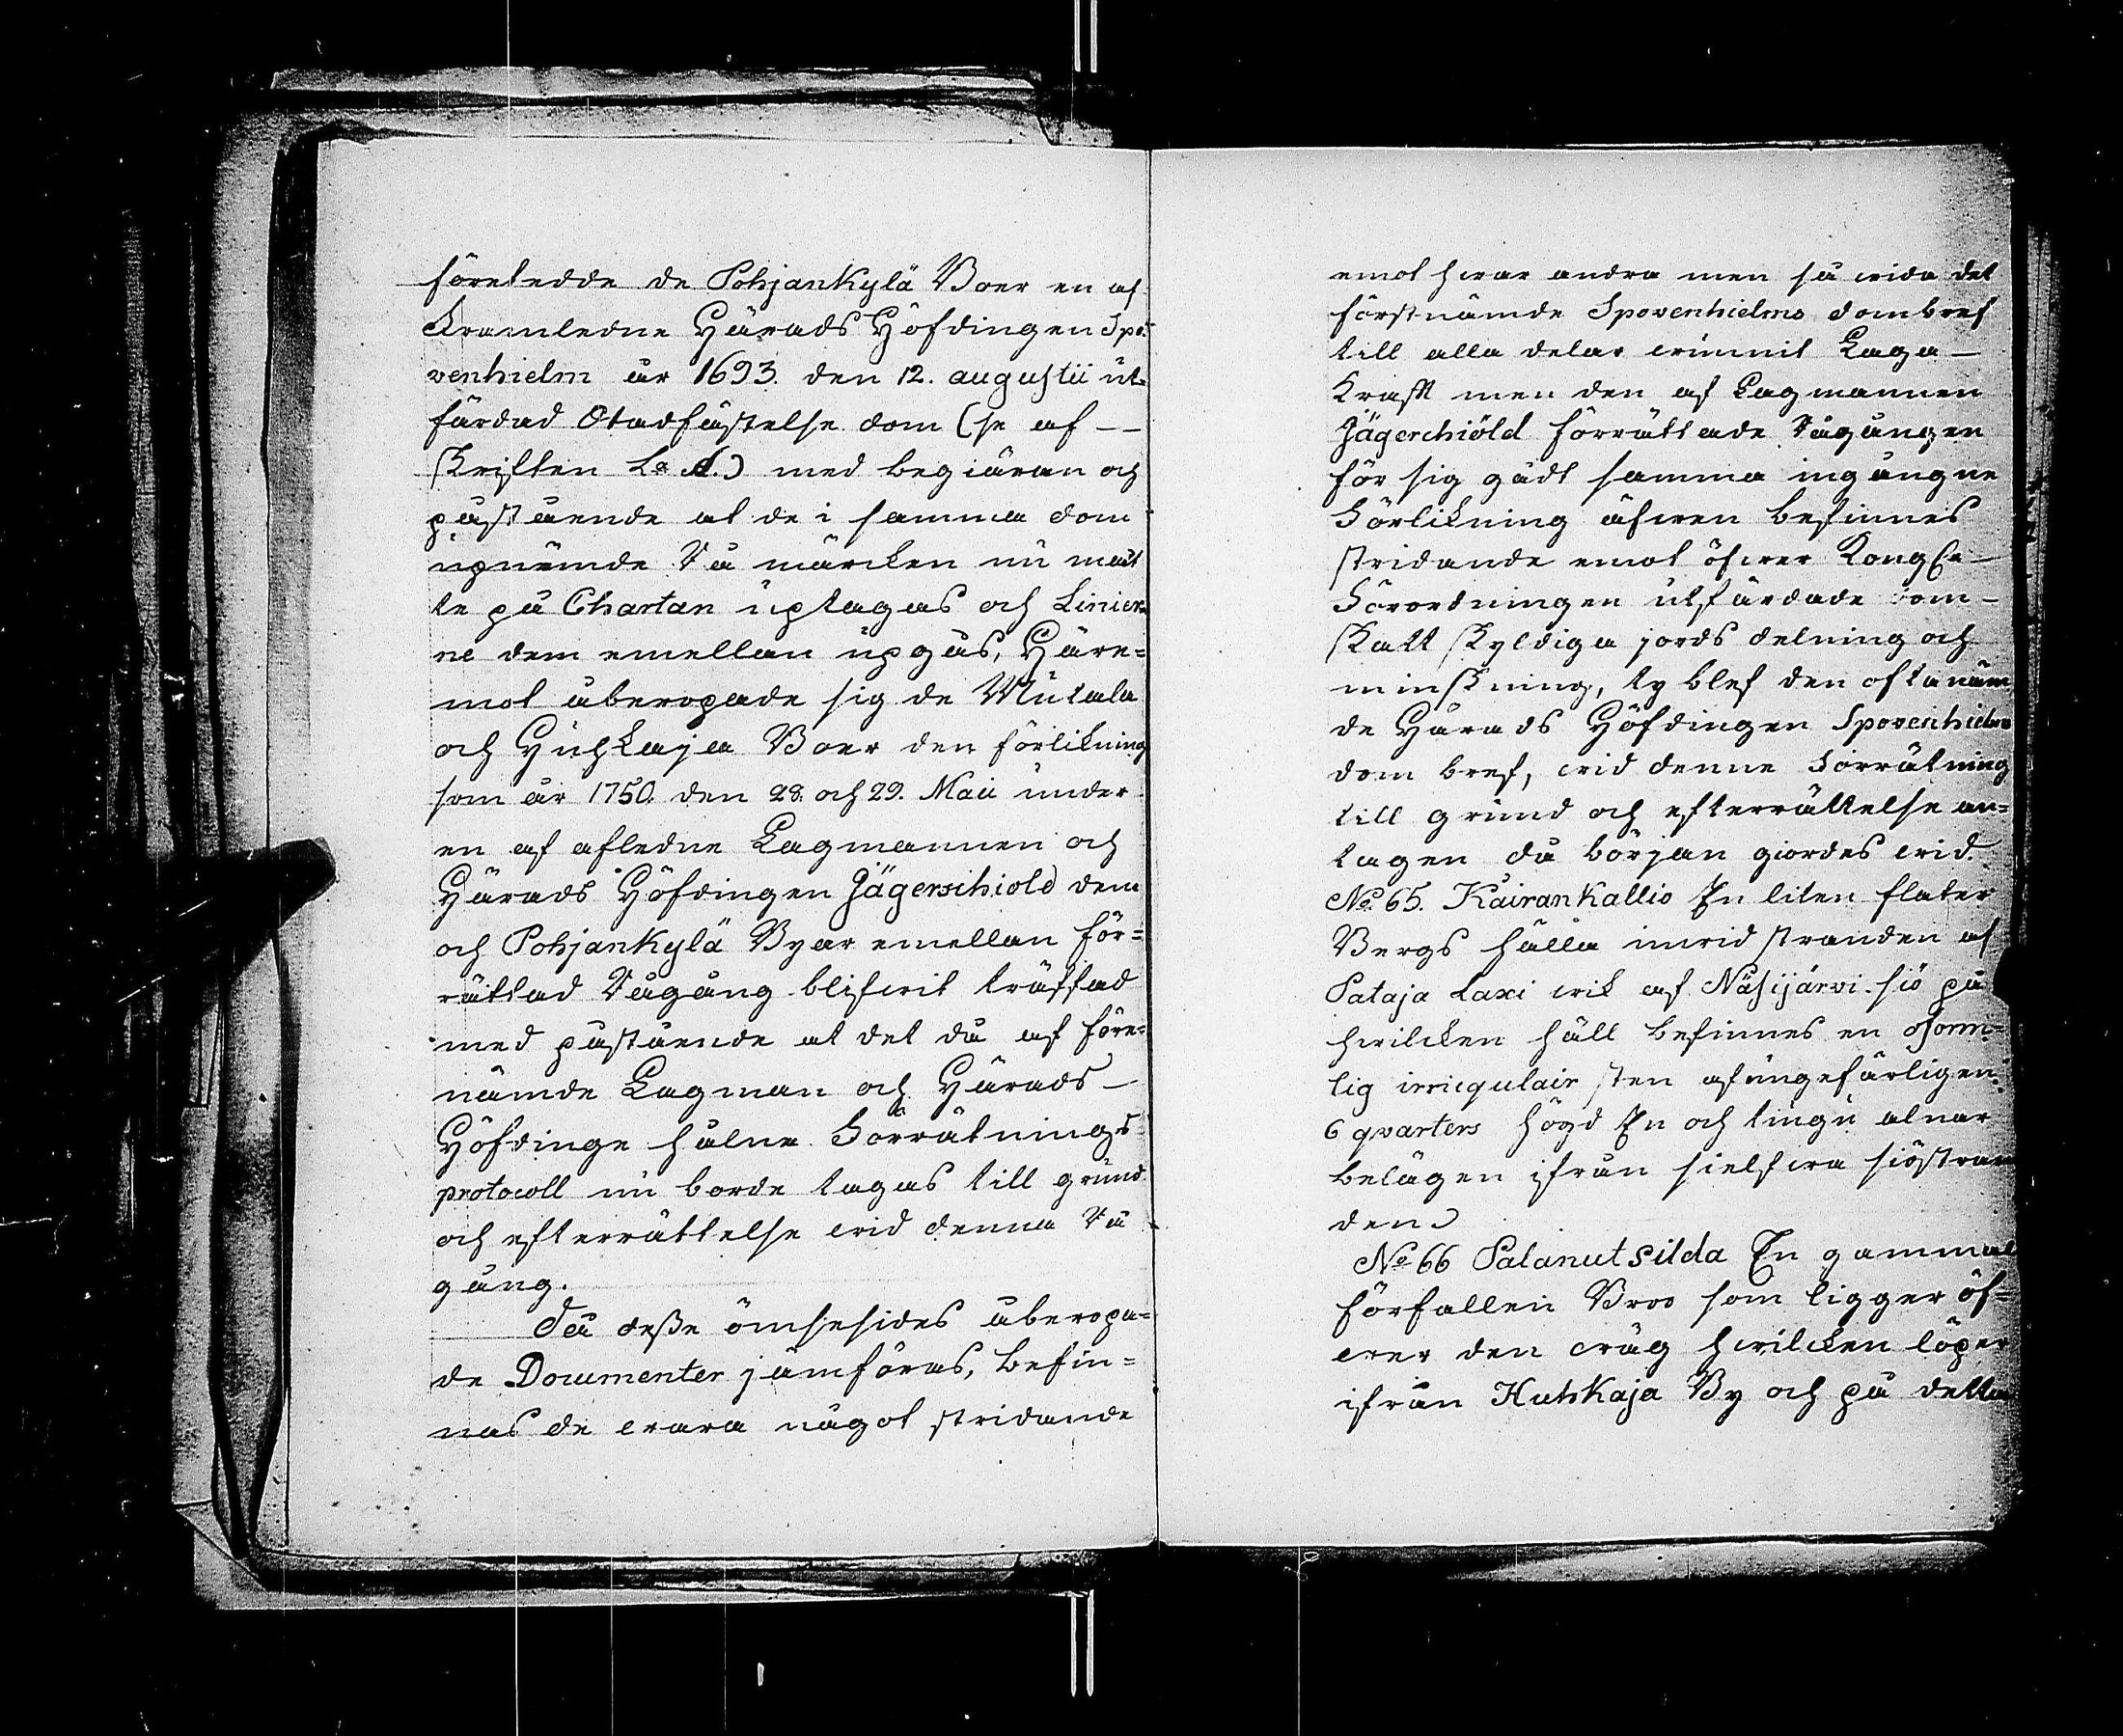 föreledde de Pohjankylä Boer en af
framledne Härads Höfdingen Spo-
venhielm år 1693. den 12. augustii ut-
färdad Stadfästelse dom (se af --
skriften La A.) med begiäran och
påstående at de i samma dom
upnämde Rå märcken nu måt
te på Chartan uptagas och Linier-
ne dem emellan upgås, Häre=
mot åberopade sig de Mutala
och Huhkaja Boer den förlikning
som år 1750. den 28. och 29. Maii under
en af afledne Lagmannen och
Härads Höfdingen Jägerschiold dem
och Pohjankylä Byar emellan för=
rättad Rågång blifwit träffad
med påstående at det då af före=
nämde Lagman och Härads -
Höfdinge hålne Förrätnings-
protocoll nu borde tagas till grund
och efterrättelse wid denna Rå
gång.
Då desse ömsesides åberopa=
de Documenter jämföras, befin=
nas de wara något stridande
emot hwar andra men så wida det
förstnämde Spovenhielms dombref
till alla delar wunnit Laga -
Kraft men den af Lagmannen
Jägerchiöld förrättade Rågången
för sig gådt samma ingångne
Förlikning äfwen befinnes
stridande emot öfwer Kongl:a -
Förordningen utfärdade om -
skatt skyldiga jords delning och
minskning, ty blef den oftanäm
de Härads Höfdingen Spovenhielms
dom bref, wid denne Förrätning
till grund och efterrättelse an=
tagen då början giordes wid.
No. 65. Kairankallio En liten flater
Bergs hälla inwid stranden af
Pataja Laxi wik af Näsijärvi siö på
hwilcken häll befinnes en oform=
lig irriegulair sten af ungefärligen
6 qvarters högd En och tiugu alnar
belägen ifrån sielfwa siöstran
den
No 66 Palanut silda En gammal
förfallen Broo som ligger öf=
wer den wäg hwilcken löper
ifrån Huhkaja By och på detta